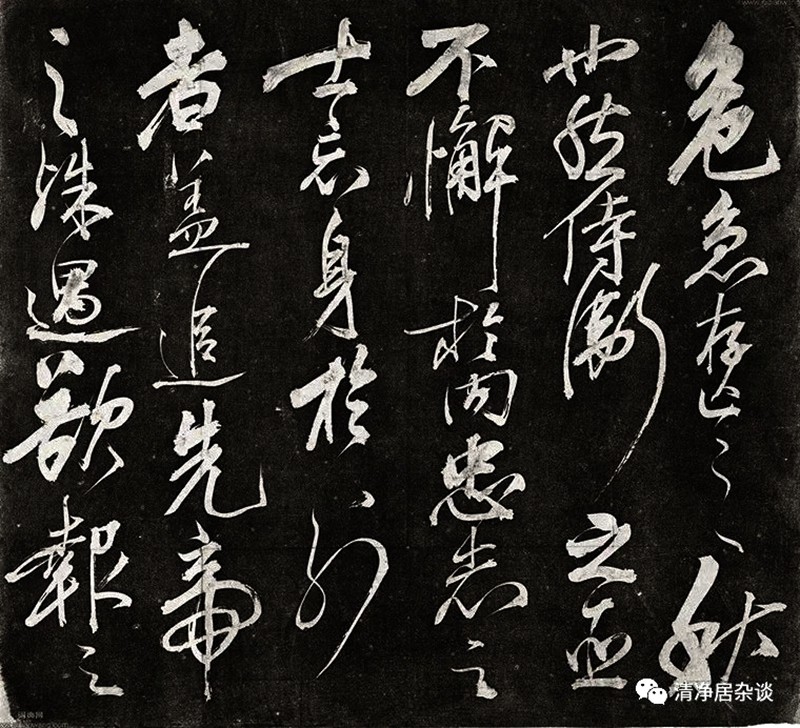 危急存亡之秋
也然侍衛之臣
不懈於内忠志之
士忘身於外
者蓋追先帝
之殊遇欲報之
清净居杂谈